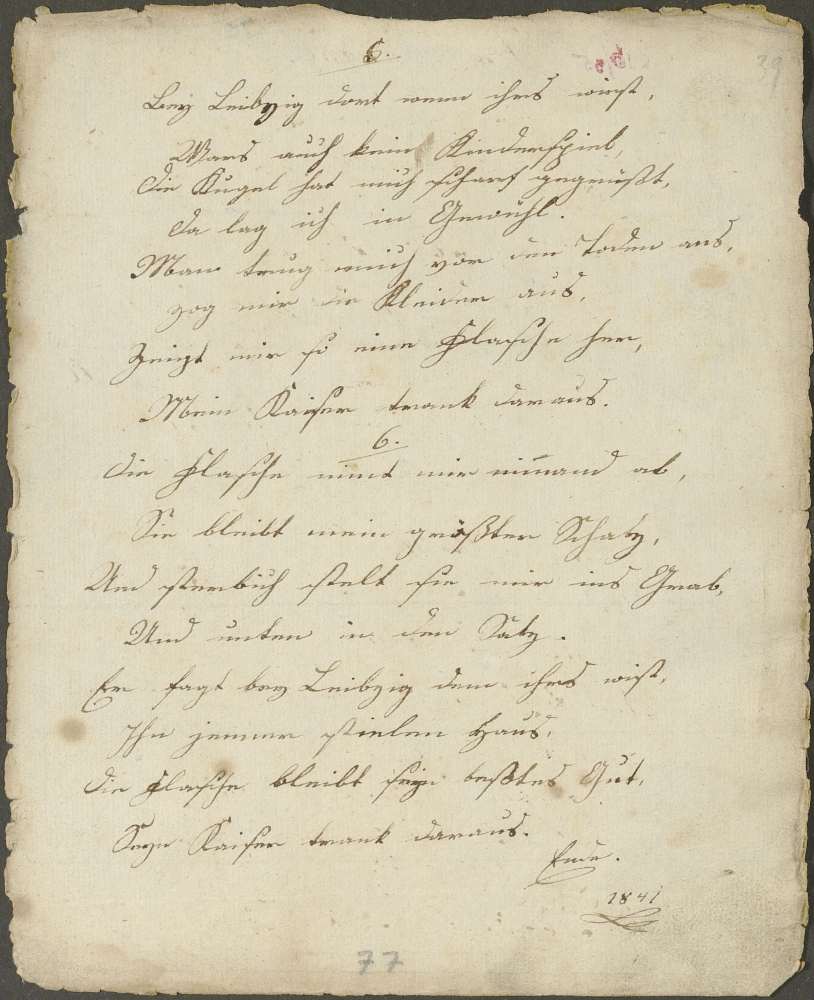 6.
Bey Leibzig dort wenn ihrs wist,
Wars auch kein Kinderspiel,
Die Kugel hat mich scharf gegrüßt,
Da lag ich in Gewühl.
Man trug mich vor den Toden aus,
zog mir die Kleider aus,
Zeigt mir so eine Flasche her,
Mein Kaiser trank daraus.
6.
Die Flasche nimt mir niemand ab,
Sie bleibt mein größter Schatz,
Und sterbich stelt sie mir ins Grab,
Und unten in den Satz.
Er sagt bey Leibzig dem ihrs wist,
Ihn jenner stielen Haus,
Die Flasche bleibt sein beßtes Gut,
Seyn Kaiser trank daraus.
Ende.
1841
77
29